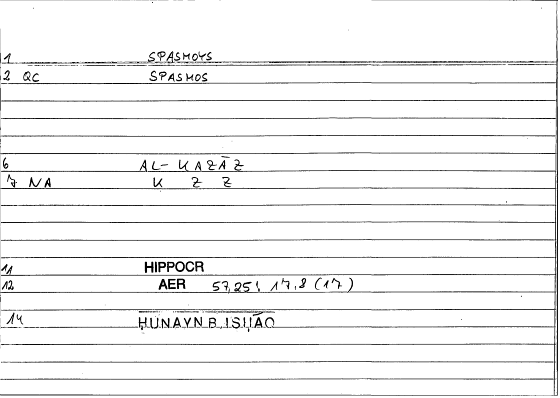 1 SPASMOYS
2 QC SPASMOS
6 AL- KAZĀZ
7 NA K Z Z
11 HIPPOCR
12 AER 57,25; 17,8 (17)
14 ḤUNAYN B. ISḤĀQ